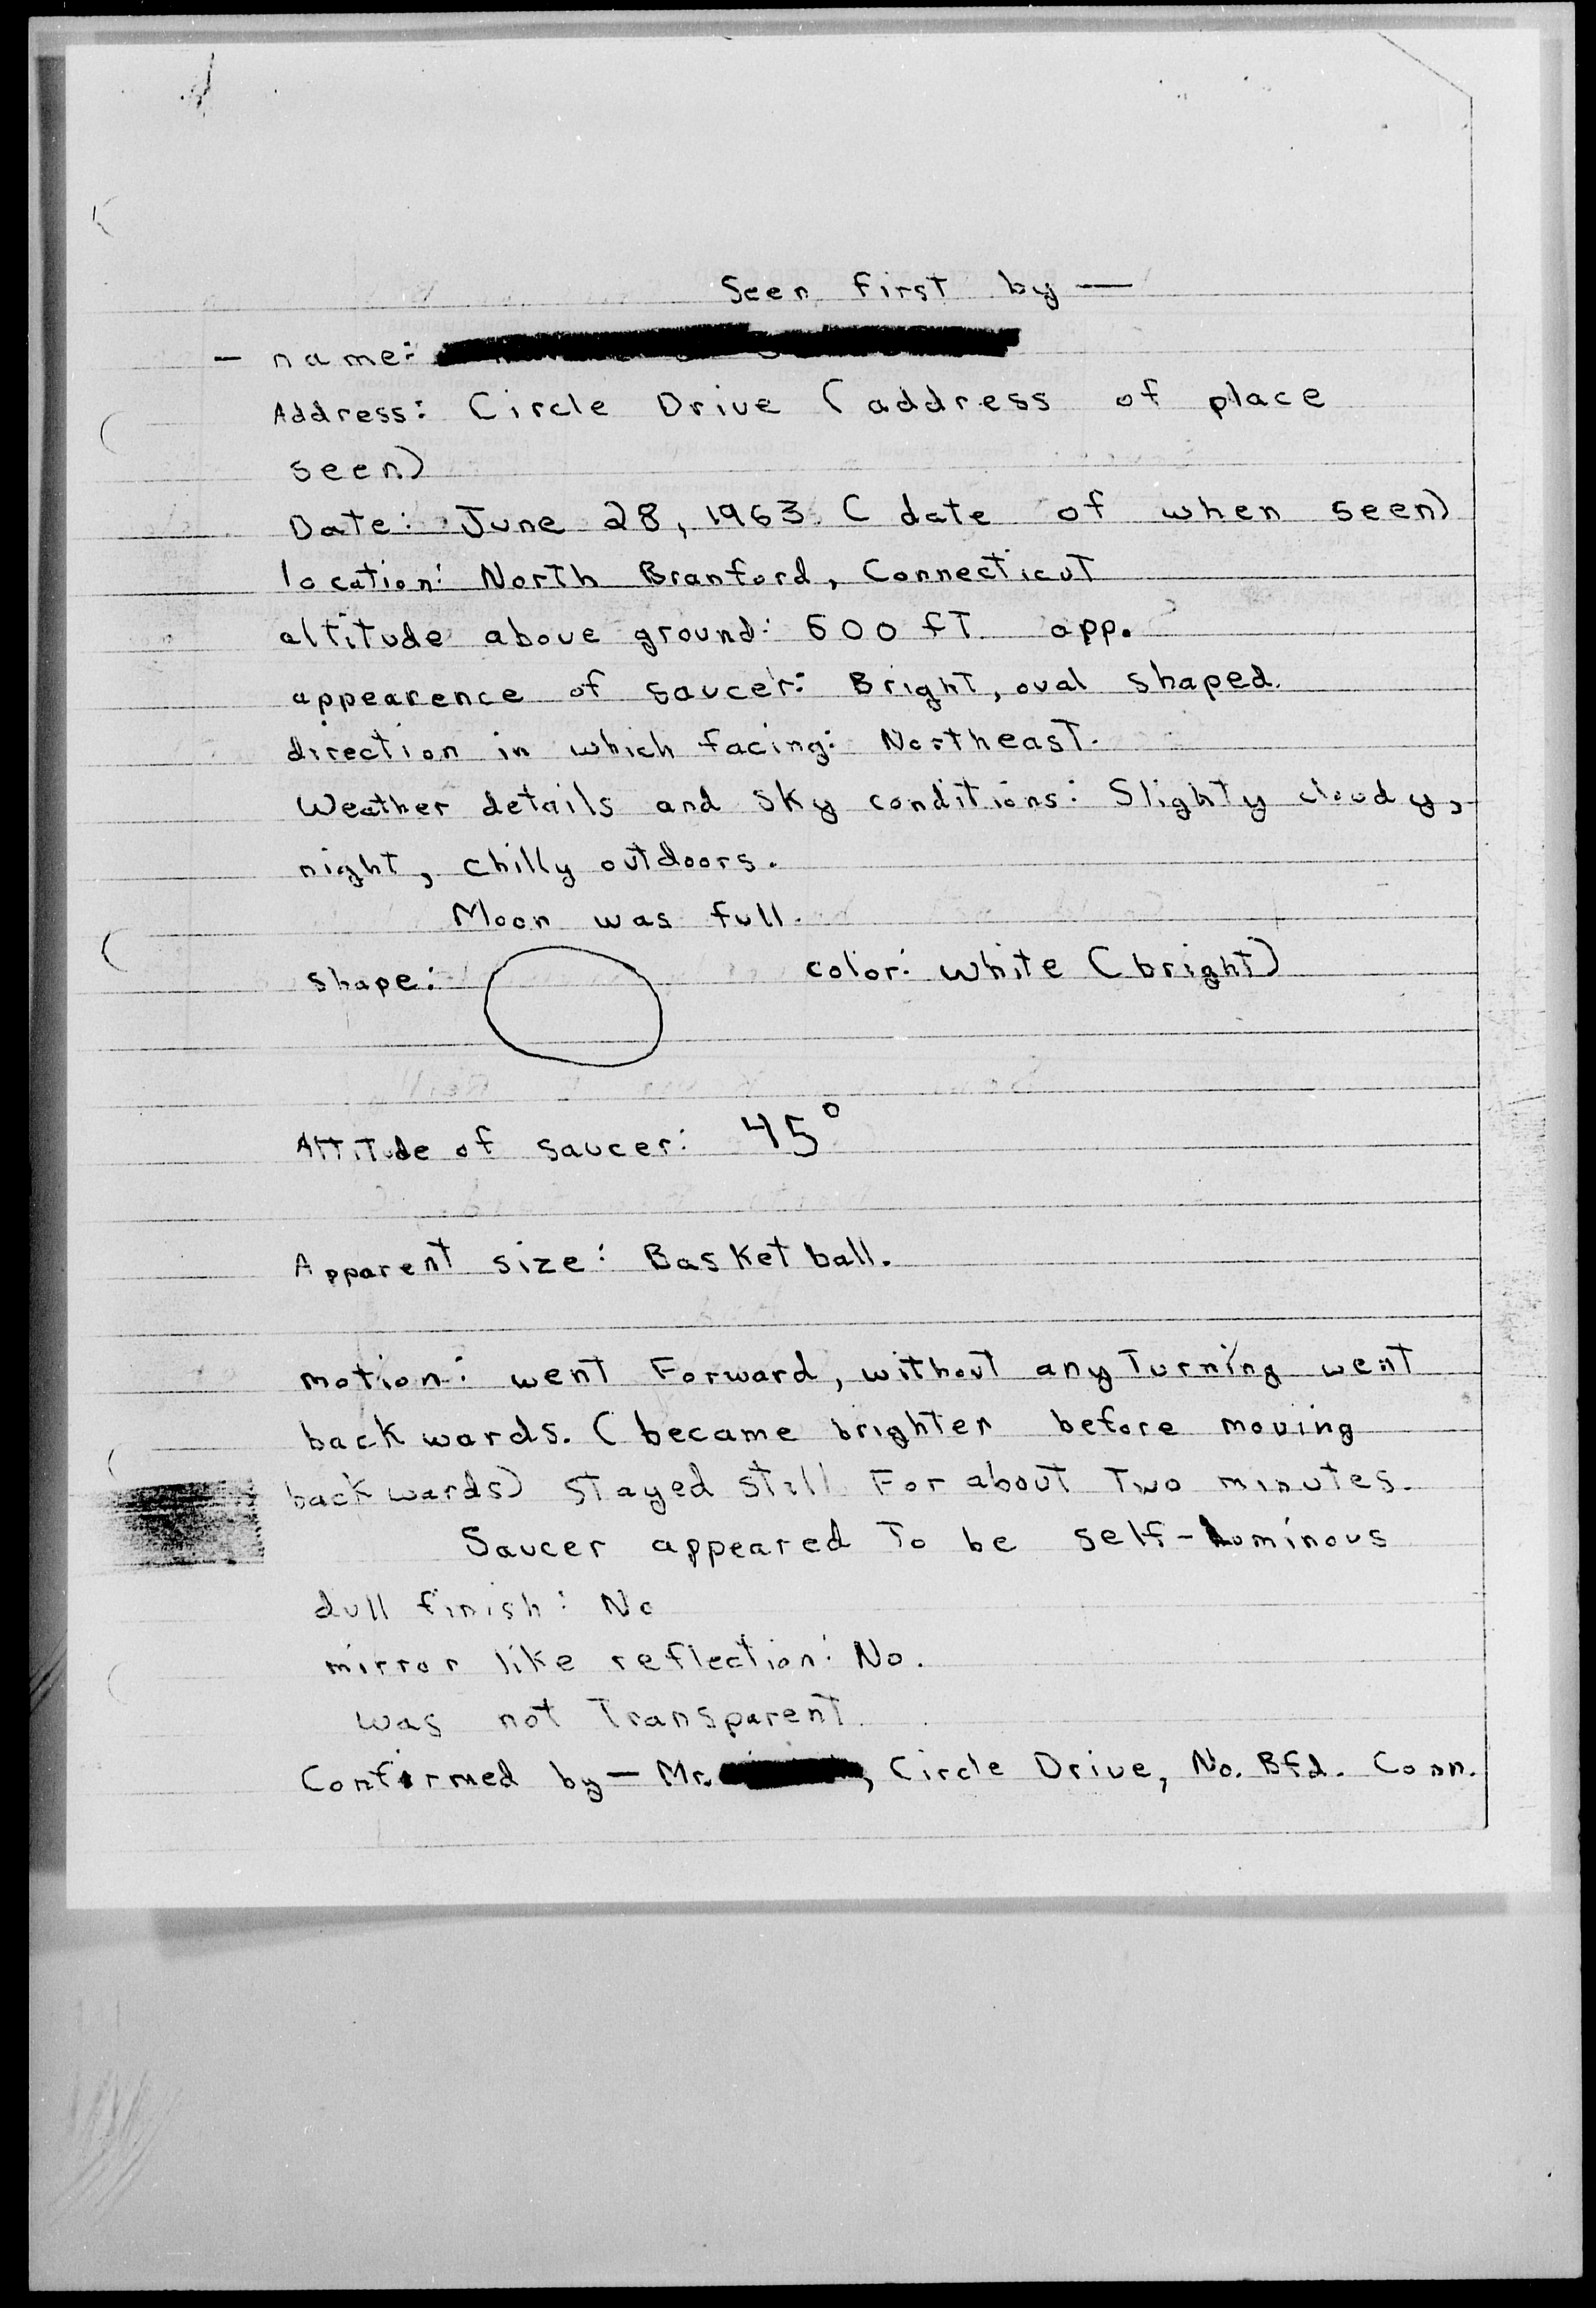 Seen first by —
— name:
Address: Circle Drive (address of place
seen)
Date: June 28, 1963. (date of when seen)
location: North Branford, Connecticut
altitude above ground: 600 fT app.
appearence of saucer: Bright, oval shaped.
direction in which facing: Northeast.
Weather details and sky conditions: Slighty cloudy,
night, chilly outdoors.
Moon was full.
shape: color: white (bright)
Attitude of saucer: 45°
Apparent size: Basketball.
motion: went Forward, without any Turning went
backwards. (became brighter before moving
backwards) Stayed still For about Two minutes.
Saucer appeared To be self-luminous
dull finish: No
mirror like reflection: No.
was not Transparent
Confirmed by — Mr. , Circle Drive, No. Bfd. Conn.